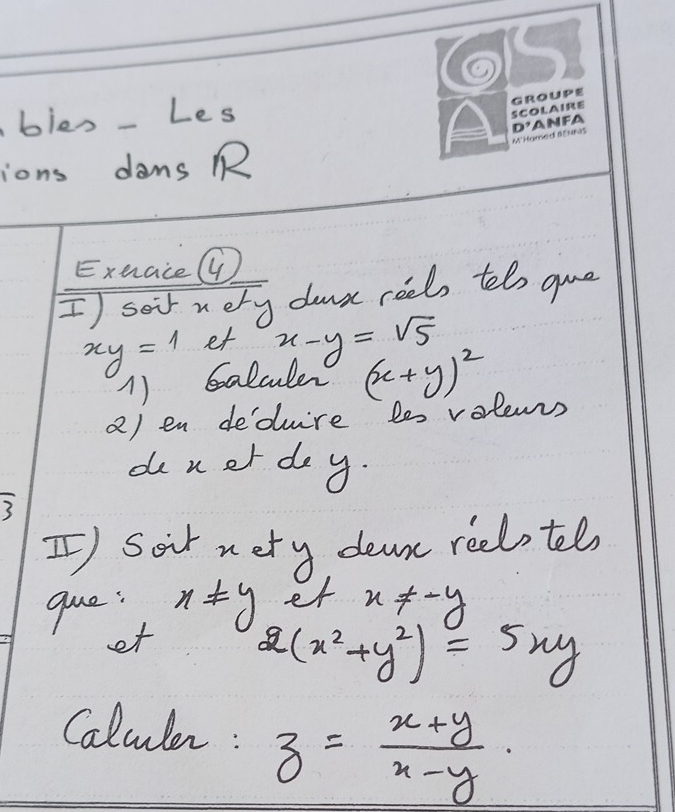 bles - Les
ions dans ℝ
GROUPE
SCOLAIRE
D'ANFA
M'Hamed BENNIS
Exercice (4)
I) soit x et y deux réels tels que
xy = 1 et x-y = √5
1) Calculer (x+y)²
2) en déduire les valeurs
de x et de y.
3
II) Soit x et y deux réels tels
que : x ≠ y et x ≠ -y
et 2(x²+y²) = 5xy
Calculer : z = (x+y)/(x-y).